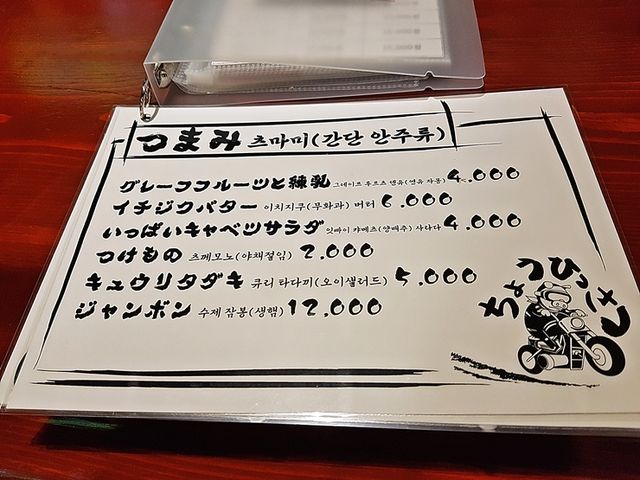 つまみ 츠마미(간단 안주류)
グレーフフルーツと練乳 그레이프 후르츠 앤유(연유 자몽) 4.000
イチジクバター 이치지쿠(무화과) 버터 6.000
いっぱいキャベツサラダ 잇빠이 캬베츠(양배추) 사라다 4.000
つけもの 츠께모노(야채절임) 2.000
キュウリタダキ 큐리 타다끼(오이샐러드) 5.000
ジャンボン 수제 잠봉(생햄) 12.000
ちょっひっさ